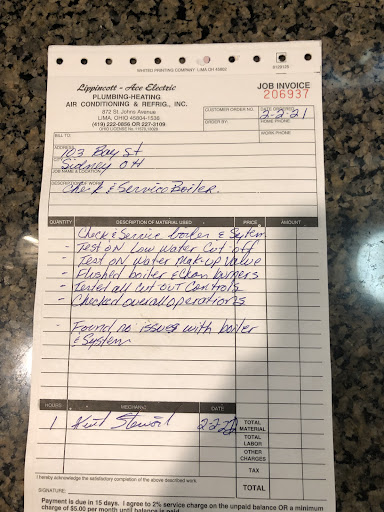 UNITED PRINTING COMPANY LIMA OH 45802
Lippincott - Ace Electric
PLUMBING-HEATING
AIR CONDITIONING & REFRIG., INC.
872 St. Johns Avenue
LIMA, OHIO 45804-1536
(419) 222-0856 OR 227-3109
JOB INVOICE
206937
CUSTOMER ORDER NO.
DATE ORDERED
2-2-21
ORDER BY:
HOME PHONE
WORK PHONE
BILL TO:
ADDRESS
103 Bay St
CITY
Sidney OH
JOB NAME & LOCATION
DESCRIPTION OF WORK
Check & Service Boiler
QUANTITY DESCRIPTION OF MATERIAL USED PRICE AMOUNT
Check & Service boiler & System
- Test ON Low Water Cut off
- Test ON Water Make-up Valve
- Flushed boiler & Clean burners
- Tested all Cut out Controls
- Checked overall operations
- Found no issues with boiler
& System
HOURS MECHANIC DATE
1
TOTAL MATERIAL
TOTAL LABOR
OTHER CHARGES
TAX
TOTAL
I hereby acknowledge the satisfactory completion of the above described work.
SIGNATURE:
Payment is due in 15 days. I agree to 2% service charge on the unpaid balance OR a minimum
charge of $5.00 per month until balance is paid.